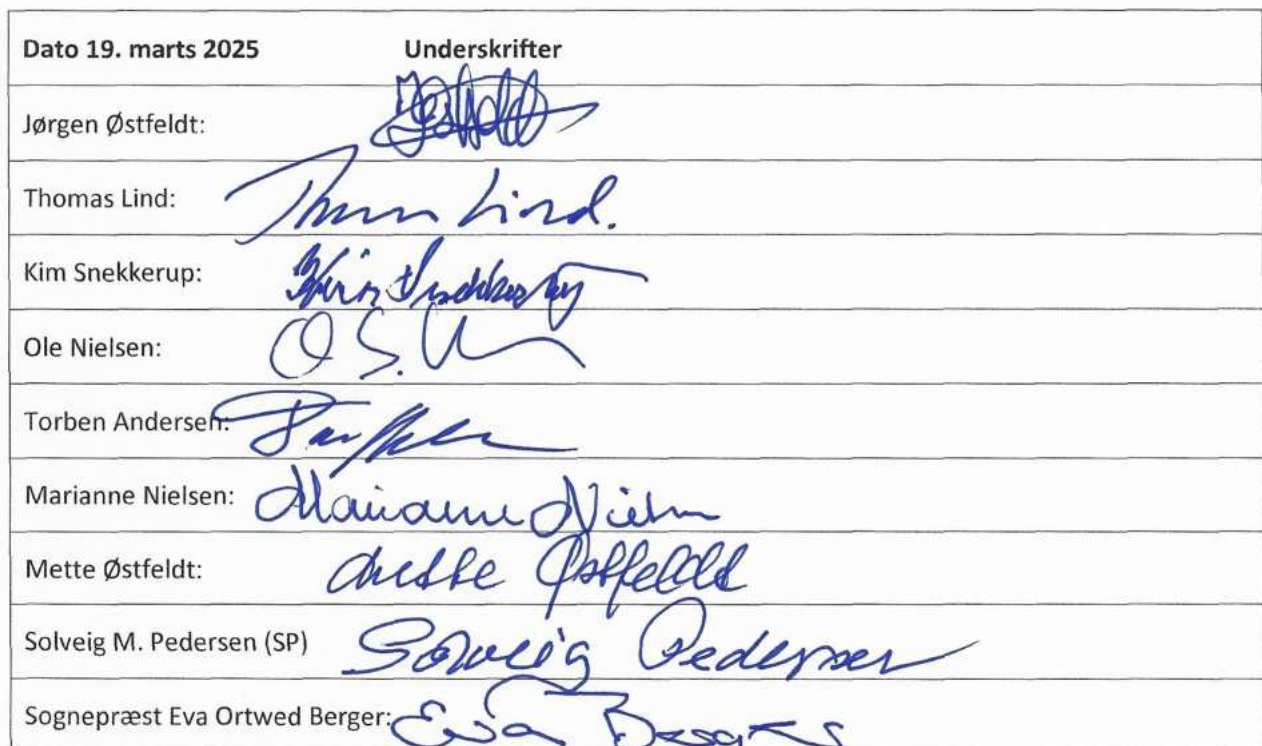 Dato 19. marts 2025 Underskrifter
Jørgen Østfeldt:
Thomas Lind: Lind.
Kim Snekkerup: Kim
Ole Nielsen: O S.
Torben Andersen:
Marianne Nielsen: Marianne Nielsen
Mette Østfeldt: Mette Østfeldt
Solveig M. Pedersen (SP) Solveig Pedersen
Sognepræst Eva Ortwed Berger: Eva